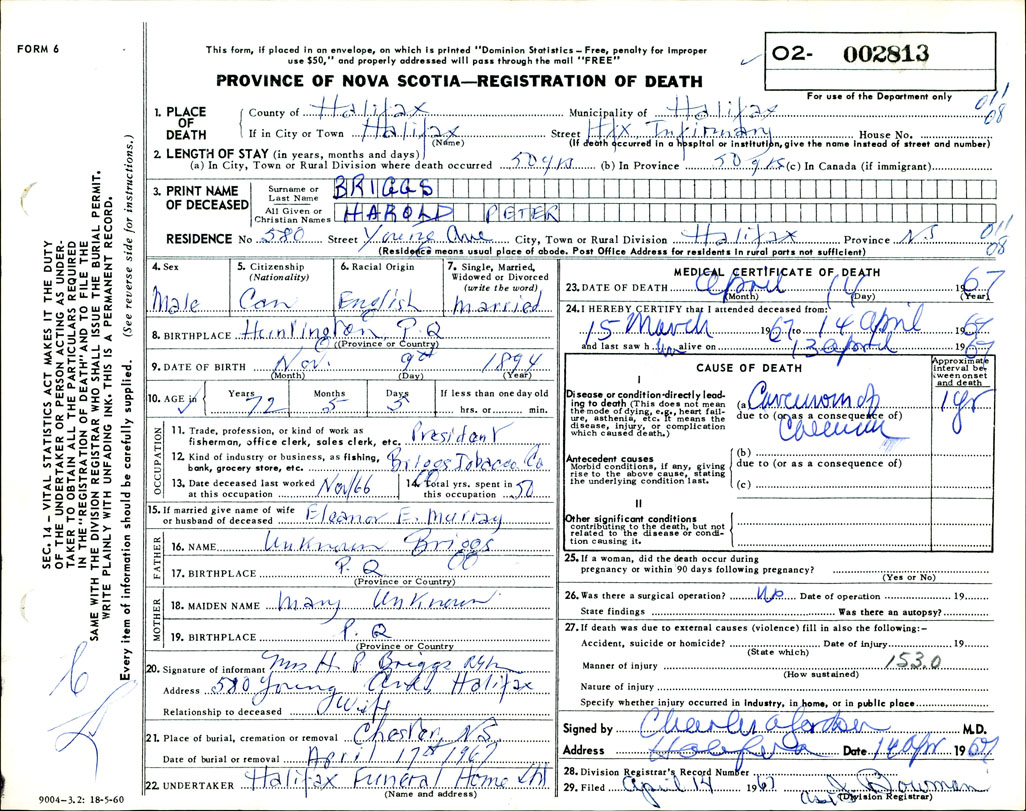 FORM 6
This form, if placed in an envelope, on which is printed "Dominion Statistics—Free, penalty for improper
use $50," and properly addressed will pass through the mail "FREE"
PROVINCE OF NOVA SCOTIA—REGISTRATION OF DEATH
02- 002813
For use of the Department only
011
08
1. PLACE OF DEATH
County of Halifax Municipality of Halifax
If in City or Town Halifax Street Hfx Infirmary House No.
(Name) (If death occurred in a hospital or institution, give the name instead of street and number)
2. LENGTH OF STAY (in years, months and days)
(a) In City, Town or Rural Division where death occurred 50 yrs (b) In Province 50 yrs (c) In Canada (if immigrant)
3. PRINT NAME OF DECEASED
Surname or Last Name BRIGGS
All Given or Christian Names HAROLD PETER
RESIDENCE No 580 Street Young Ave City, Town or Rural Division Halifax Province N.S
011
08
(Residence means usual place of abode. Post Office Address for residents in rural parts not sufficient)
4. Sex Male
5. Citizenship (Nationality) Can
6. Racial Origin English
7. Single, Married, Widowed or Divorced (write the word) Married
8. BIRTHPLACE Huntington P.Q
(Province or Country)
9. DATE OF BIRTH Nov. 9th 1894
(Month) (Day) (Year)
10. AGE in Years 72 Months 5 Days 5 If less than one day old hrs. or min.
OCCUPATION
11. Trade, profession, or kind of work as
fisherman, office clerk, sales clerk, etc. President
12. Kind of industry or business, as fishing,
bank, grocery store, etc. Briggs Tobacco Co
13. Date deceased last worked
at this occupation Nov/66
14. Total yrs. spent in
this occupation 50
15. If married give name of wife
or husband of deceased Eleanor E. Murray
FATHER
16. NAME Unknown Briggs
17. BIRTHPLACE P.Q
(Province or Country)
MOTHER
18. MAIDEN NAME Mary Unknown
19. BIRTHPLACE P.Q
(Province or Country
20. Signature of informant Mrs H. P. Briggs
Address 580 Young Ave, Halifax
Relationship to deceased Wife
21. Place of burial, cremation or removal Chester, N.S
Date of burial or removal April 17th 1967
22. UNDERTAKER Halifax Funeral Home Ltd
(Name and address)
MEDICAL CERTIFICATE OF DEATH
23. DATE OF DEATH April 14 1967
(Month) (Day) (Year)
24. I HEREBY CERTIFY that I attended deceased from:
15 March 1967 to 14 April 1967
and last saw him alive on 13 April 1967
CAUSE OF DEATH
Approximate interval between onset and death
I
Disease or condition directly leading to death (This does not mean the mode of dying, e.g., heart failure, asthenia, etc. It means the disease, injury, or complication which caused death.)
(a) Carcinoma of 1 yr
due to (or as a consequence of)
Antecedent causes
Morbid conditions, if any, giving rise to the above cause, stating the underlying condition last.
(b)
due to (or as a consequence of)
(c)
II
Other significant conditions
contributing to the death, but not related to the disease or condition causing it.
25. If a woman, did the death occur during
pregnancy or within 90 days following pregnancy?
(Yes or No)
26. Was there a surgical operation? No Date of operation 19
State findings Was there an autopsy?
27. If death was due to external causes (violence) fill in also the following:—
Accident, suicide or homicide? Date of injury 19
(State which)
Manner of injury 153.0
(How sustained)
Nature of injury
Specify whether injury occurred in industry, in home, or in public place
Signed by M.D.
Address Halifax Date 14 Apr 1967
28. Division Registrar's Record Number
29. Filed April 14 1967 Bowman
(Division Registrar)
SEC. 14 – VITAL STATISTICS ACT MAKES IT THE DUTY
OF THE UNDERTAKER OR PERSON ACTING AS UNDER-
TAKER TO OBTAIN ALL THE PARTICULARS REQUIRED
IN THE "REGISTRATION OF DEATH" AND TO FILE THE
SAME WITH THE DIVISION REGISTRAR WHO SHALL ISSUE THE BURIAL PERMIT.
WRITE PLAINLY WITH UNFADING INK. THIS IS A PERMANENT RECORD.
Every item of information should be carefully supplied. (See reverse side for instructions.)
9004–3.2: 18-5-60